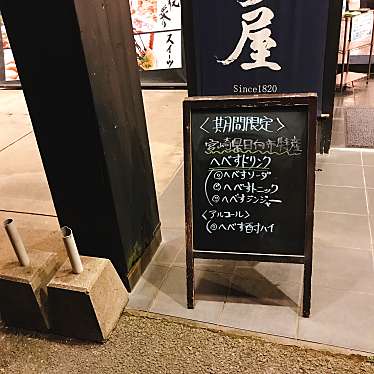 スイーツ
屋
Since1820
〈期間限定〉
宮崎県日向市特産
へべすドリンク
へべすソーダ
へべすトニック
へべすジンジャー
〈アルコール〉
へべす酎ハイ